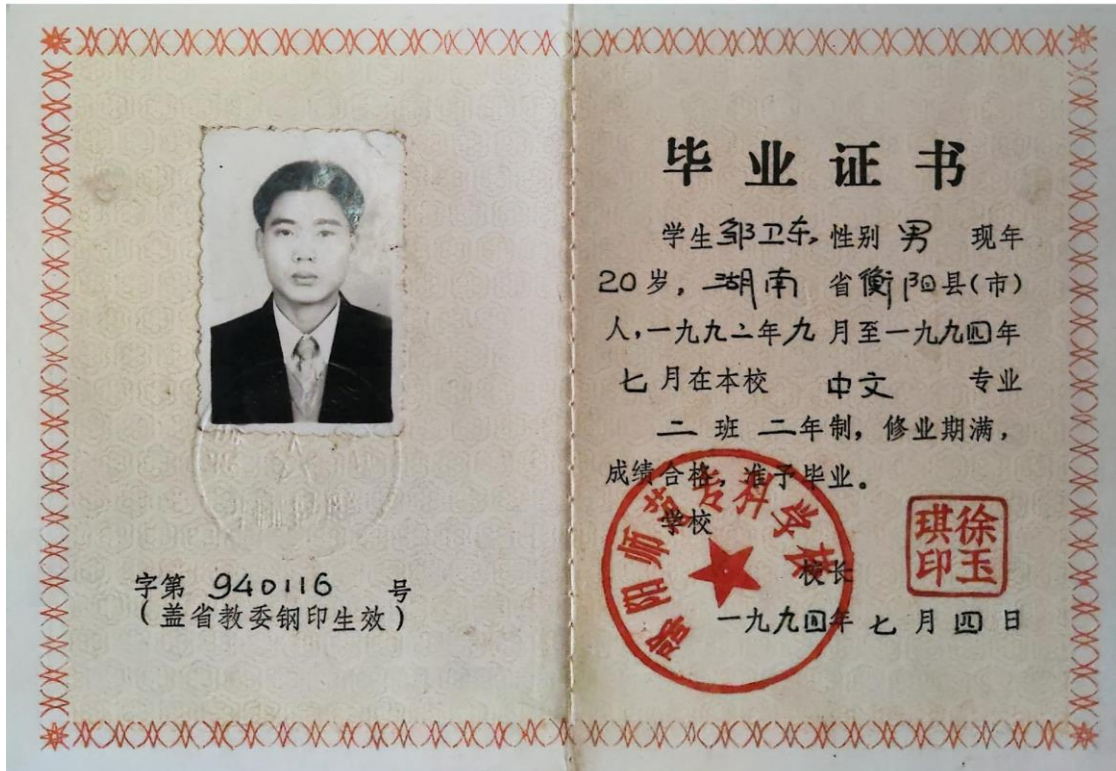 字第 940116 号
(盖省教委钢印生效)
毕业证书
学生邹卫东，性别 男 现年
20岁，湖南 省衡阳县(市)
人，一九九二年九 月至一九九四年
七月在本校 中文 专业
二 班 二年制，修业期满，
成绩合格，准予毕业。
学校
衡阳师范专科学校
校长
徐玉琪印
一九九四年 七 月 四 日